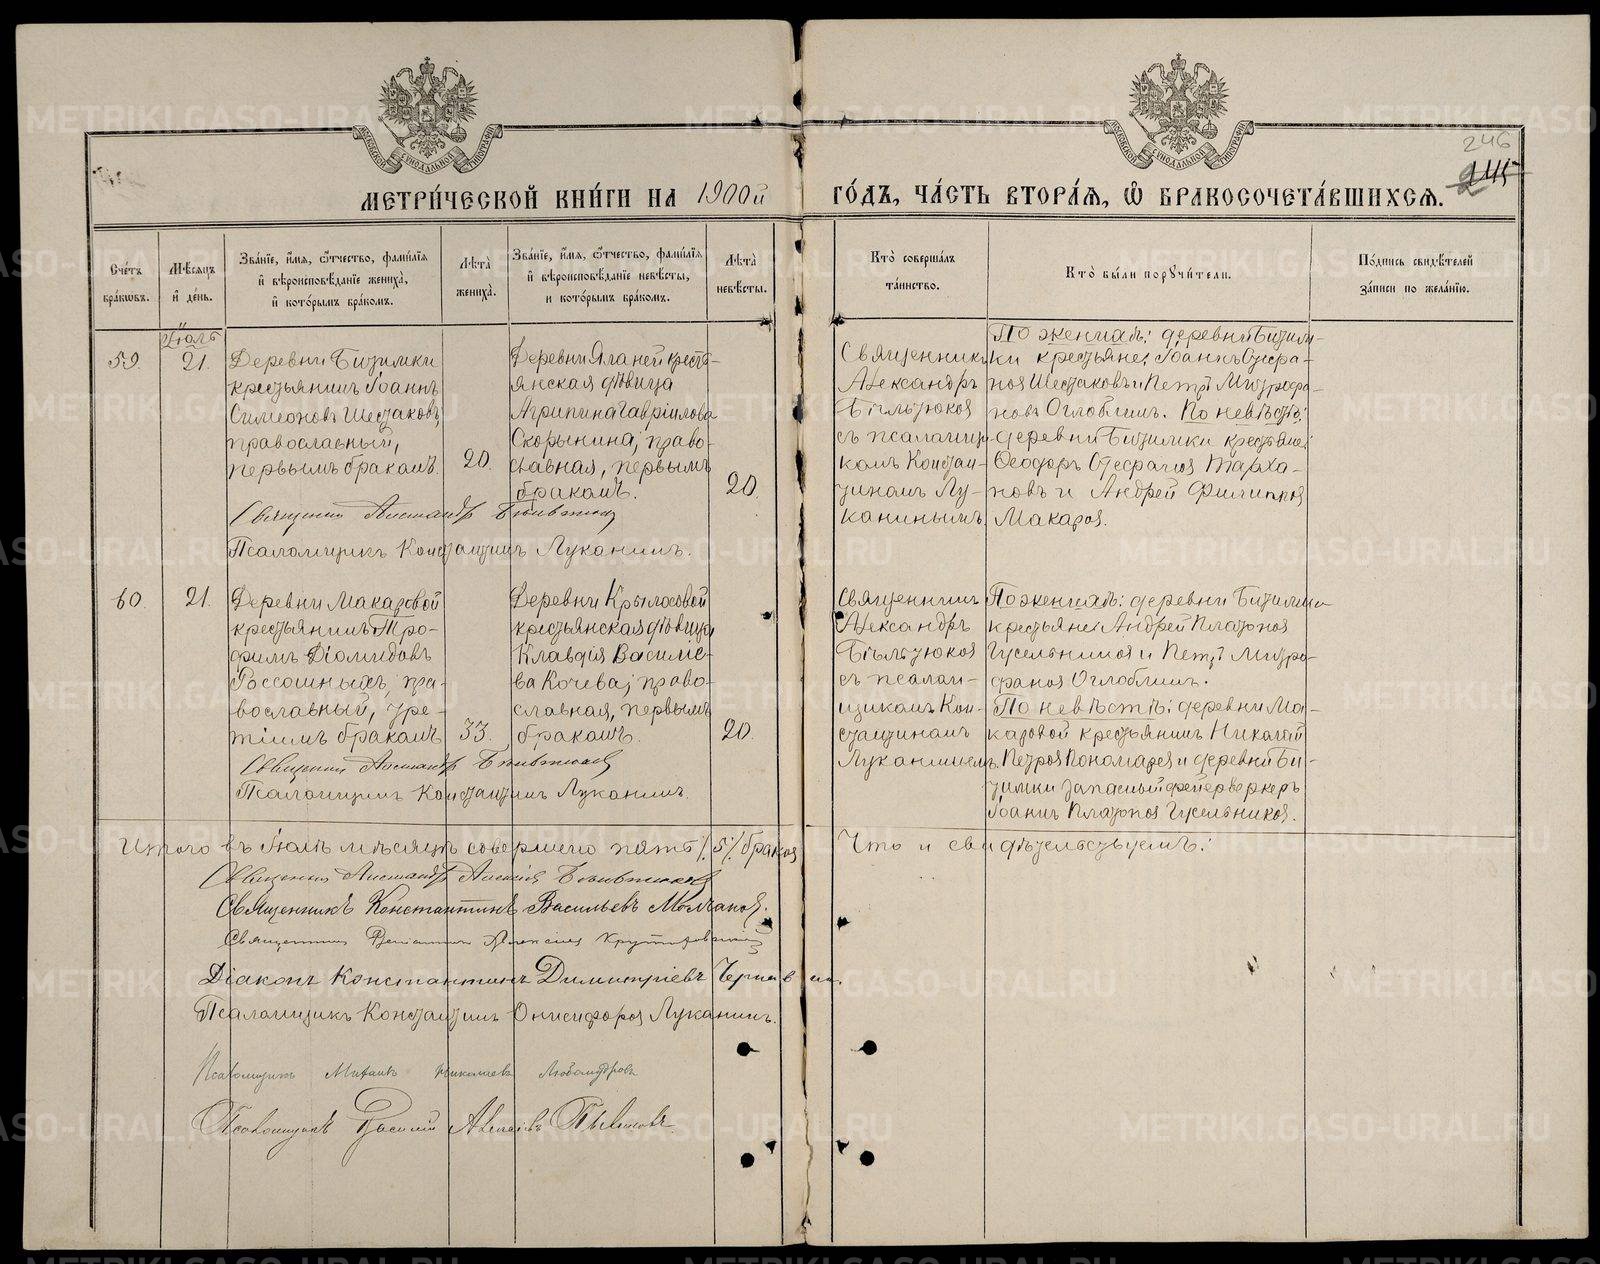 246
245
МЕТРИ́ЧЕСКОЙ КНИ́ГИ НА 1900й ГО́ДЪ, ЧА́СТЬ ВТОРА́Я, Ѡ БРАКОСОЧЕТА́ВШИХСЯ.
Сче́тъ бра́ковъ.
Мѣ́сяцъ и де́нь.
Зва́нїе, и́мя, ѻ́тчество, фами́лїя и вѣроисповѣ́данїе жениха̀, и кото́рымъ бра́комъ.
Лѣ́та жениха̀.
Зва́нїе, и́мя, ѻ́тчество, фами́лїя и вѣроисповѣ́данїе невѣ́сты, и кото́рымъ бра́комъ.
Лѣ́та невѣ́сты.
Кто̀ соверша́лъ та́инство.
Кто̀ бы́ли порꙋчи́тели.
По́дпись свидѣ́телей за́писи по жела́нїю.
Іюль
59.
21.
Деревни Битимки
крестьянинъ Іоаннъ
Симеоновъ Шестаковъ,
православный,
первымъ бракомъ.
20.
Деревни Яланей кресть-
янская дѣвица
Агрипина Гавріилова
Скорынина, право-
славная, первымъ
бракомъ.
20.
Священникъ
Александръ
Бѣльтюковъ
съ псаломщи-
комъ Констан-
тиномъ Лу-
канинымъ.
По женихѣ: деревни Битим-
ки крестьяне: Іоаннъ Стефа-
новъ Шестаковъ и Петръ Митрофа-
новъ Оглоблинъ. По невѣстѣ:
деревни Битимки крестьяне:
Ѳеодоръ Стефановъ Тарха-
новъ и Андрей Филиппов
Макаров.
Священникъ Александръ
Псаломщикъ Константинъ Луканинъ.
60.
21.
Деревни Макаровой
крестьянинъ Тро-
фимъ Діомидовъ
Россошныхъ, пра-
вославный, тре-
тіимъ бракомъ
33.
Деревни Крылосовой
крестьянская дѣвица
Клавдія Василіе-
ва Кочева, право-
славная, первымъ
бракомъ.
20.
Священникъ
Александръ
Бѣльтюковъ
съ псалом-
щикомъ Кон-
стантиномъ
Луканинымъ.
По женихѣ: деревни Битимки
крестьяне: Андрей Платонов
Гусельников и Петръ Митро-
фанов Оглоблинъ.
По невѣстѣ: деревни Ма-
каровой крестьянинъ Николай
Петров Пономарев и деревни Би-
тимки запасный фейерверкеръ
Іоаннъ Платонов Гусельников.
Священникъ Александръ
Псаломщикъ Константинъ Луканинъ.
Итого въ Іюлѣ мѣсяцѣ совершено пять /5/ браков Что и свидѣтельствуемъ:
Священникъ Александръ Алексѣев
Священникъ Константинъ Васильевъ Молчанов.
Священникъ Веніаминъ Алексѣев
Діаконъ Константинъ Димитріевъ
Псаломщикъ Константинъ Онисифоров Луканинъ.
Псаломщикъ Михаилъ Николаевъ
Псаломщикъ Василій Алексѣевъ
METRIKI.GASO-URAL.RU